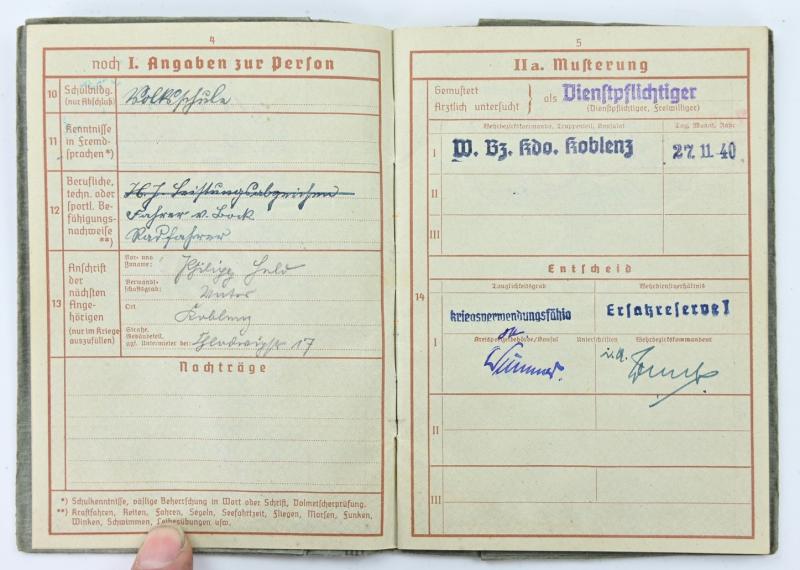 4
noch I. Angaben zur Person
10 Schulbildg. (nur Abschluß)
Volksschule
11 Kenntnisse in Fremdsprachen *)
12 Berufliche, techn. oder sportl. Befähigungsnachweise **)
H. J. Leistungsabzeichen
Fahrer v. Bock
Radfahrer
13 Anschrift der nächsten Angehörigen (nur im Kriege auszufüllen)
Vor- und Zuname: Philipp Held
Verwandtschaftsgrad: Vater
Ort Koblenz
Straße, Gebäudeteil, ggf. Untermieter bei: 17
Nachträge
*) Schulkenntnisse, völlige Beherrschung in Wort oder Schrift, Dolmetscherprüfung.
**) Kraftfahren, Reiten, Fahren, Segeln, Seefahrtzeit, Fliegen, Morsen, Funken,
Winken, Schwimmen, Leibesübungen usw.
5
II a. Musterung
Gemustert
Ärztlich untersucht } als Dienstpflichtiger
(Dienstpflichtiger, Freiwilliger)
Wehrbezirkskommando, Truppenteil, Konsulat
Tag, Monat, Jahr
I W. Bz. Kdo. Koblenz 27. 11. 40
II
III
Entscheid
14
Tauglichkeitsgrad
Wehrdienstverhältnis
kriegsverwendungsfähig
Ersatzreserve I
I
Kreispolizeibehörde/Konsul Unterschriften Wehrbezirkskommandeur
II
III